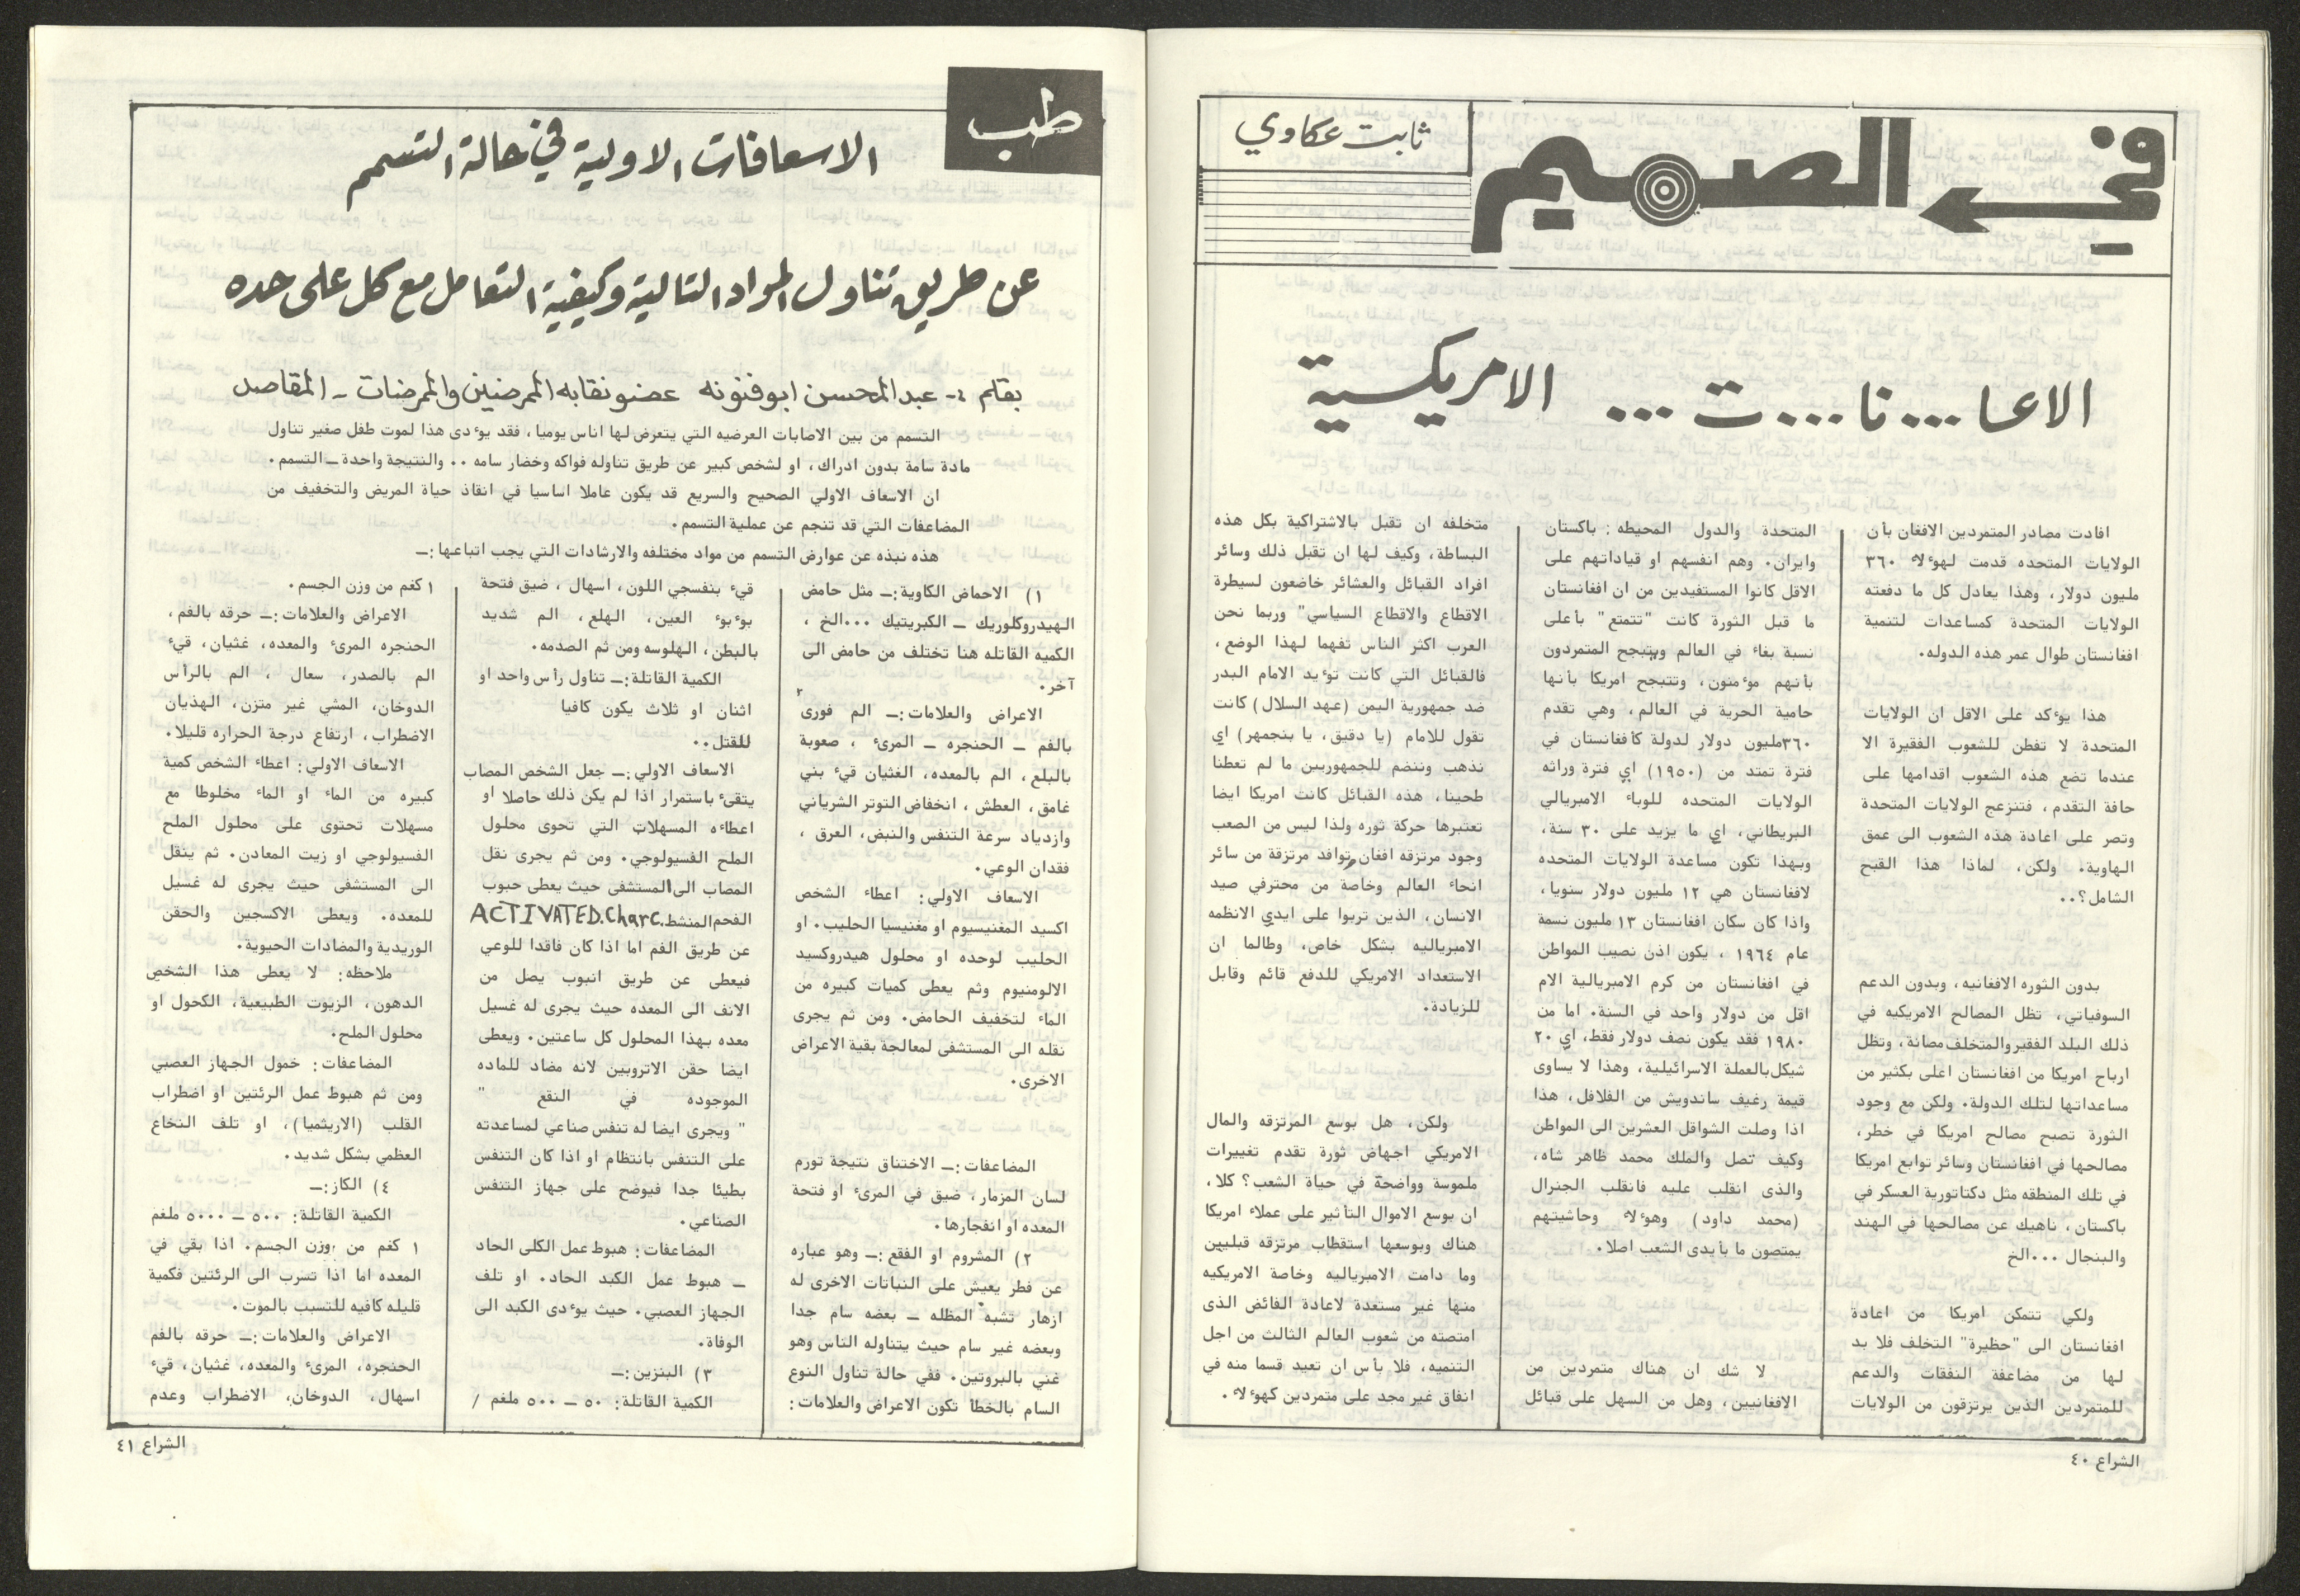 في الصميم
ثابت عكاوي
الاعا...نا...ت ... الامريكسية
افادت مصادر المتمردين الافغان بأن
الولايات المتحده قدمت لهؤلاء ٣٦٠
مليون دولار، وهذا يعادل كل ما دفعته
الولايات المتحدة كمساعدات لتنمية
افغانستان طوال عمر هذه الدوله.
هذا يؤكد على الاقل ان الولايات
المتحدة لا تفطن للشعوب الفقيرة الا
عندما تضع هذه الشعوب اقدامها على
حافة التقدم، فتنزعج الولايات المتحدة
وتصر على اعادة هذه الشعوب الى عمق
الهاوية. ولكن، لماذا هذا القبح
الشامل؟..
بدون الثوره الافغانيه، وبدون الدعم
السوفياتي، تظل المصالح الامريكيه في
ذلك البلد الفقير والمتخلف مصانة، وتظل
ارباح امريكا من افغانستان اعلى بكثير من
مساعداتها لتلك الدولة. ولكن مع وجود
الثورة تصبح مصالح امريكا في خطر،
مصالحها في افغانستان وسائر توابع امريكا
في تلك المنطقه مثل دكتاتورية العسكر في
باكستان، ناهيك عن مصالحها في الهند
والبنجال ...الخ
ولكي تتمكن امريكا من اعادة
افغانستان الى "حظيرة" التخلف فلا بد
لها من مضاعفة النفقات والدعم
للمتمردين الذين يرتزقون من الولايات
المتحدة والدول المحيطه: باكستان
وايران. وهم انفسهم او قياداتهم على
الاقل كانوا المستفيدين من ان افغانستان
ما قبل الثورة كانت "تتمتع" بأعلى
نسبة بغاء في العالم ويتبجح المتمردون
بأنهم مؤمنون، وتتبجح امريكا بأنها
حامية الحرية في العالم، وهي تقدم
٣٦٠مليون دولار لدولة كأفغانستان في
فترة تمتد من (١٩٥٠) اي فترة وراثه
الولايات المتحده للوباء الامبريالي
البريطاني، اي ما يزيد على ٣٠ سنة،
وبهذا تكون مساعدة الولايات المتحده
لافغانستان هي ١٢ مليون دولار سنويا،
واذا كان سكان افغانستان ١٣ مليون نسمة
عام ١٩٦٤ ، يكون اذن نصيب المواطن
في افغانستان من كرم الامبريالية الام
اقل من دولار واحد في السنة. اما من
١٩٨٠ فقد يكون نصف دولار فقط، اي ٢٠
شيكل بالعملة الاسرائيلية، وهذا لا يساوى
قيمة رغيف ساندويش من الفلافل، هذا
اذا وصلت الشواقل العشرين الى المواطن
وكيف تصل والملك محمد ظاهر شاه،
والذى انقلب عليه فانقلب الجنرال
(محمد داود) وهؤلاء وحاشيتهم
يمتصون ما بأيدى الشعب اصلا.
لا شك ان هناك متمردين من
الافغانيين، وهل من السهل على قبائل
متخلفه ان تقبل بالاشتراكية بكل هذه
البساطة، وكيف لها ان تقبل ذلك وسائر
افراد القبائل والعشائر خاضعون لسيطرة
الاقطاع والاقطاع السياسي" وربما نحن
العرب اكثر الناس تفهما لهذا الوضع،
فالقبائل التي كانت تؤيد الامام البدر
ضد جمهورية اليمن (عهد السلال) كانت
تقول للامام (يا دقيق، يا بنجمهر) اي
نذهب وننضم للجمهوريين ما لم تعطنا
طحينا، هذه القبائل كانت امريكا ايضا
تعتبرها حركة ثوره ولذا ليس من الصعب
وجود مرتزقه افغان وتوافد مرتزقة من سائر
انحاء العالم وخاصة من محترفي صيد
الانسان، الذين تربوا على ايدي الانظمه
الامبرياليه بشكل خاص، وطالما ان
الاستعداد الامريكي للدفع قائم وقابل
للزيادة.
ولكن، هل بوسع المرتزقه والمال
الامريكي اجهاض ثورة تقدم تغييرات
ملموسة وواضحة في حياة الشعب؟ كلا،
ان بوسع الاموال التأثير على عملاء امريكا
هناك وبوسعها استقطاب مرتزقه قبليين
وما دامت الامبرياليه وخاصة الامريكيه
منها غير مستعدة لاعادة الفائض الذى
امتصته من شعوب العالم الثالث من اجل
التنميه، فلا بأس ان تعيد قسما منه في
انفاق غير مجد على متمردين كهؤلاء.
الشراع ٤٠
طب
الاسعافات الاولية في حالة التسمم
عن طريق تناول المواد التالية وكيفية التعامل مع كل على حده
بقلم :- عبد المحسن ابو فنونه عضو نقابه الممرضين والممرضات - المقاصد
التسمم من بين الاصابات العرضيه التي يتعرض لها اناس يوميا، فقد يؤدى هذا لموت طفل صغير تناول
مادة سامة بدون ادراك، او لشخص كبير عن طريق تناوله فواكه وخضار سامه .. والنتيجة واحدة ــ التسمم.
ان الاسعاف الاولي الصحيح والسريع قد يكون عاملا اساسيا في انقاذ حياة المريض والتخفيف من
المضاعفات التي قد تنجم عن عملية التسمم.
هذه نبذه عن عوارض التسمم من مواد مختلفه والارشادات التي يجب اتباعها:ــ
١) الاحماض الكاوية:ــ مثل حامض
الهيدروكلوريك ــ الكبريتيك ...الخ ،
الكميه القاتله هنا تختلف من حامض الى
آخر.
الاعراض والعلامات:ــ الم فورى
بالفم ــ الحنجره ــ المرئ ، صعوبة
بالبلع، الم بالمعده، الغثيان قيء بني
غامق، العطش، انخفاض التوتر الشرياني
وازدياد سرعة التنفس والنبض، العرق ،
فقدان الوعي.
الاسعاف الاولي: اعطاء الشخص
اكسيد المغنيسيوم او مغنيسيا الحليب. او
الحليب لوحده او محلول هيدروكسيد
الالومنيوم وثم يعطى كميات كبيره من
الماء لتخفيف الحامض. ومن ثم يجرى
نقله الى المستشفى لمعالجة بقية الاعراض
الاخرى.
المضاعفات:ــ الاختناق نتيجة تورم
لسان المزمار، ضيق في المرئ او فتحة
المعده او انفجارها.
٢) المشروم او الفقع:ــ وهو عباره
عن فطر يعيش على النباتات الاخرى له
ازهار تشبه المظله ــ بعضه سام جدا
وبعضه غير سام حيث يتناوله الناس وهو
غني بالبروتين. ففي حالة تناول النوع
السام بالخطأ تكون الاعراض والعلامات:
قيء بنفسجي اللون، اسهال ، ضيق فتحة
بؤبؤ العين، الهلع، الم شديد
بالبطن، الهلوسه ومن ثم الصدمه.
الكمية القاتلة:ــ تناول رأس واحد او
اثنان او ثلاث يكون كافيا
للقتل..
الاسعاف الاولي:ــ جعل الشخص المصاب
يتقىء باستمرار اذا لم يكن ذلك حاصلا او
اعطاءه المسهلات التي تحوى محلول
الملح الفسيولوجي. ومن ثم يجرى نقل
المصاب الى المستشفى حيث يعطى حبوب
الفحم المنشط.ACTIVATED.Charc
عن طريق الفم اما اذا كان فاقدا للوعي
فيعطى عن طريق انبوب يصل من
الانف الى المعده حيث يجرى له غسيل
معده بهذا المحلول كل ساعتين. ويعطى
ايضا حقن الاتروبين لانه مضاد للماده
الموجوده في النقع "
" ويجرى ايضا له تنفس صناعي لمساعدته
على التنفس بانتظام او اذا كان التنفس
بطيئا جدا فيوضح على جهاز التنفس
الصناعي.
المضاعفات: هبوط عمل الكلى الحاد
ــ هبوط عمل الكبد الحاد. او تلف
الجهاز العصبي. حيث يؤدى الكبد الى
الوفاة.
٣) البنزين:ــ
الكمية القاتلة: ٥٠ ــ ٥٠٠ ملغم /
١ كغم من وزن الجسم.
الاعراض والعلامات:ــ حرقه بالفم،
الحنجره المرئ والمعده، غثيان، قيء
الم بالصدر، سعال ، الم بالرأس
الدوخان، المشي غير متزن، الهذيان
الاضطراب، ارتفاع درجة الحراره قليلا.
الاسعاف الاولي: اعطاء الشخص كمية
كبيره من الماء او الماء مخلوطا مع
مسهلات تحتوى على محلول الملح
الفسيولوجي او زيت المعادن. ثم ينقل
الى المستشفى حيث يجرى له غسيل
للمعده. ويعطى الاكسجين والحقن
الوريدية والمضادات الحيوية.
ملاحظه: لا يعطى هذا الشخص
الدهون، الزيوت الطبيعية، الكحول او
محلول الملح.
المضاعفات: خمول الجهاز العصبي
ومن ثم هبوط عمل الرئتين او اضطراب
القلب (الاريثميا)، او تلف النخاع
العظمي بشكل شديد.
٤) الكاز:ــ
الكمية القاتلة: ٥٠٠ ــ ٥٠٠٠ ملغم
١ كغم من وزن الجسم. اذا بقي في
المعده اما اذا تسرب الى الرئتين فكمية
قليله كافيه للتسبب بالموت.
الاعراض والعلامات:ــ حرقه بالفم
الحنجره، المرئ والمعده، غثيان، قيء
اسهال، الدوخان، الاضطراب وعدم
الشراع ٤١